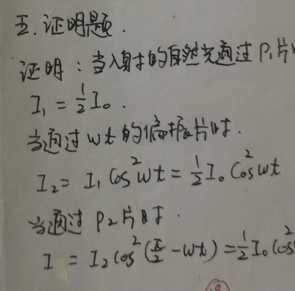 五.证明题.
证明：当入射的自然光通过P₁片时
I₁ = ½I₀.
当通过wt的偏振片时.
I₂ = I₁ cos²wt = ½I₀ cos²wt
当通过P₂片时.
I = I₂ cos²(π/2 - wt) = ½I₀ cos²